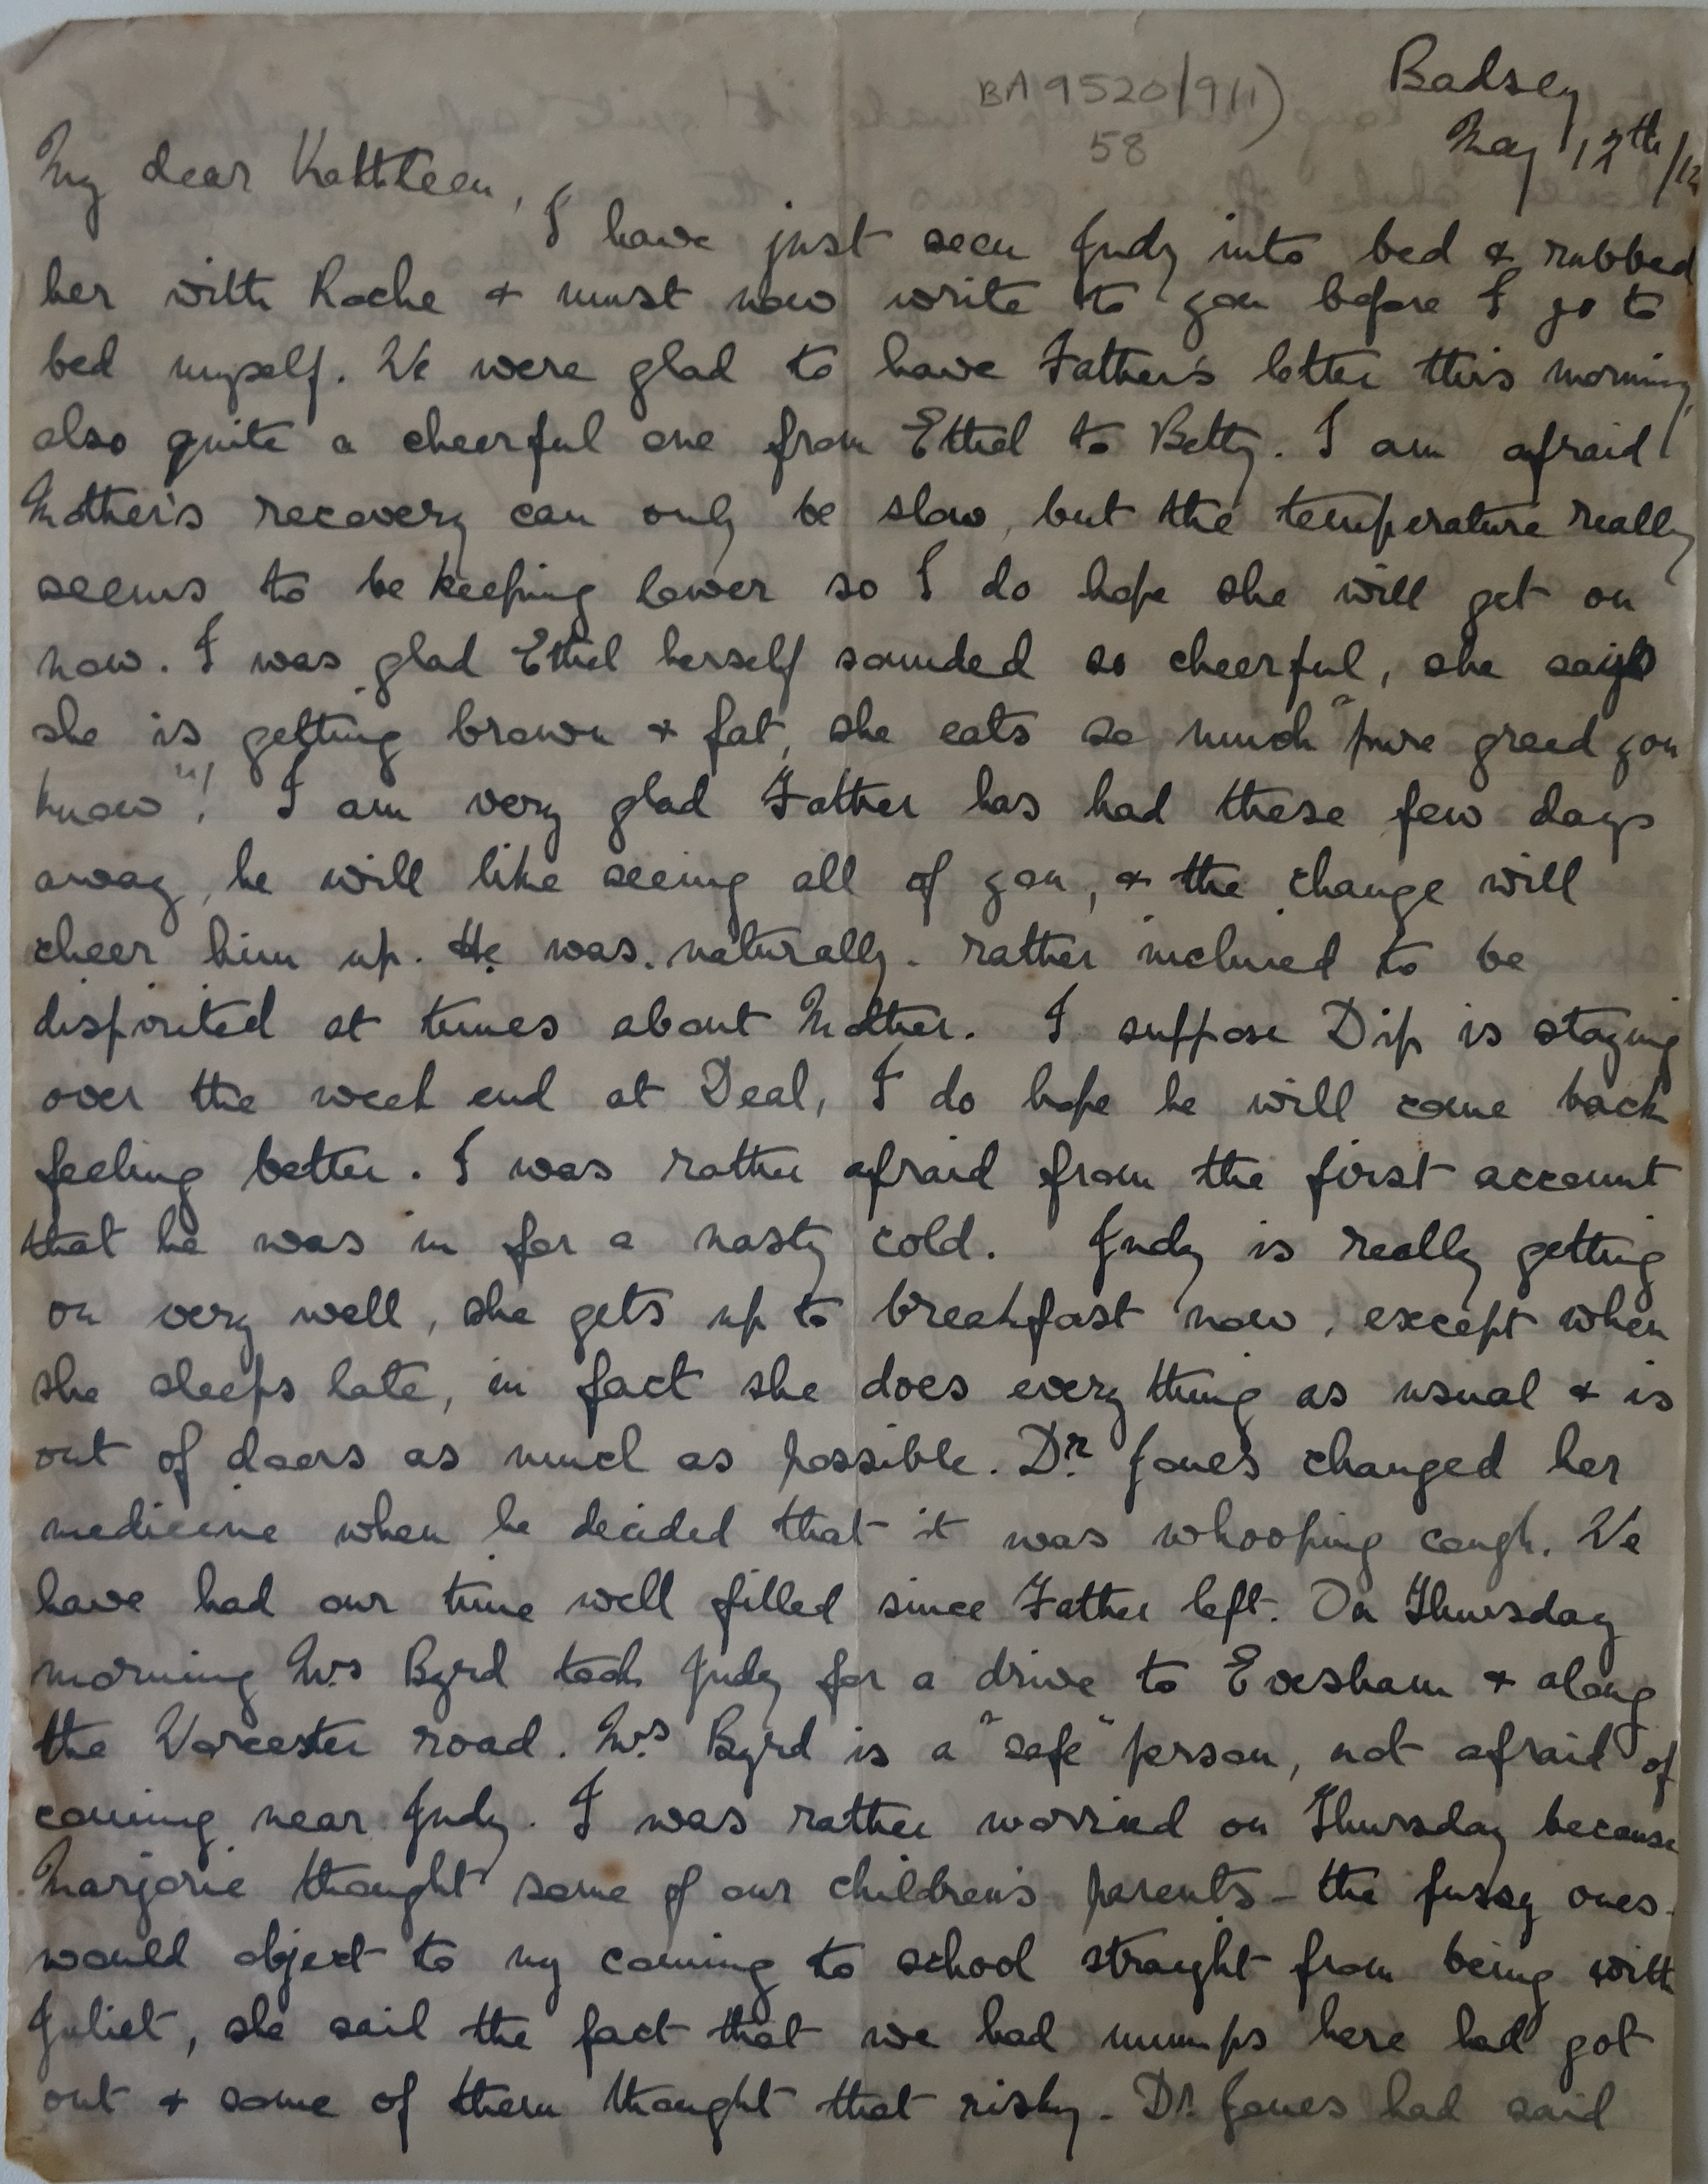 BA 9520/9(1)
58
Badsey
May 12th/12
My dear Kathleen,
I have just seen Judy into bed & rubbed
her with Roche & must now write to you before I go to
bed myself. We were glad to have Father's letter this morning,
also quite a cheerful one from Ethel to Betty. I am afraid
Mother's recovery can only be slow, but the temperature really
seems to be keeping lower so I do hope she will get on
now. I was glad Ethel herself sounded so cheerful, she says
she is getting brown & fat, she eats so much "pure greed you
know"! I am very glad Father has had these few days
away, he will like seeing all of you, & the change will
cheer him up. He was naturally rather inclined to be
dispirited at times about Mother. I suppose Dip is staying
over the week end at Deal, I do hope he will come back
feeling better. I was rather afraid from the first account
that he was in for a nasty cold. Judy is really getting
on very well, she gets up to breakfast now, except when
she sleeps late, in fact she does every thing as usual & is
out of doors as much as possible. Dr. Jones changed her
medicine when he decided that it was whooping cough. We
have had our time well filled since Father left. On Thursday
morning Mrs Byrd took Judy for a drive to Evesham & along
the Worcester road. Mrs Byrd is a "safe" person, not afraid of
coming near Judy. I was rather worried on Thursday because
Marjorie thought some of our children's parents - the fussy ones -
would object to my coming to school straight from being with
Juliet, she said the fact that we had mumps here had got
out & some of them thought that risky. Dr. Jones had said